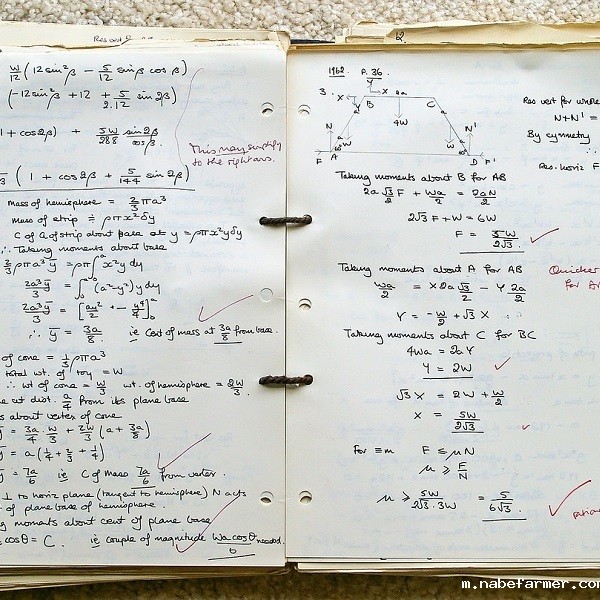 Res vert
W/12 (12 sin²β − 5/12 sinβ cosβ)
(−12 sin²β + 12 + 5/2.12 sin2β)
1 + cos2β) + 5W/288 sin2β
cosβ.
This may simplify
to the right ans.
(1 + cos2β + 5/144 sin2β)
mass of hemisphere = 2/3 πa³
mass of strip ≑ ρπx²δy
C of M of strip about base at y = ρπx²yδy
∴ Taking moments about base
2/3 ρπa³ȳ = ρπ∫x²y dy
2a³ȳ/3 = ∫(a²−y²)y dy
2a³ȳ/3 = [ay²/2 − y⁴/4]
∴ ȳ = 3a/8 ie Cent of mass at 3a/8 from base.
of cone = 1/3 ρπa³
total wt. of toy = W
∴ wt of cone = W/3 wt. of hemisphere = 2W/3
wt dist. a/4 from its plane base
about vertex of cone
ȳ = 3a/4 . W/3 + 2W/3 (a + 3a/8)
ȳ = a(1/4 + 2/3 + 1/4)
ȳ = 7a/6 ie C of mass 7a/6 from vertex.
⊥ to horiz plane (tangent to hemisphere) N acts
of plane base of hemisphere.
moments about cent of plane base
cosθ = C. ie couple of magnitude Wa cosθ/6 needed.
12.
1962. P. 36
3. X Y X 2a
B C
4W
N N'
W W
60° 60°
F A D F'
Res vert for whole
N+N' =
By symmetry
∴
Res. horiz F
Taking moments about B for AB
2a√3/2 F + Wa/2 = 2aN/2
2√3F + W = 6W
F = 5W/2√3.
Taking moments about A for AB
Wa/2 = X2a√3/2 − Y2a/2
Quicker
for
Y = −W/2 + √3X
Taking moments about C for BC
4Wa = 2aY
Y = 2W
√3X = 2W + W/2
X = 5W/2√3
for ≡m F ≤ μN
μ ≥ F/N
μ ≥ 5W/2√3.3W = 5/6√3.
m.nabefarmer.com